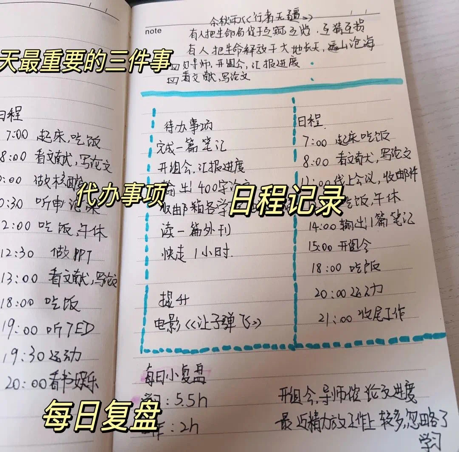 note
余秋雨《行者无疆》
有人把生命
有人把生命释放于大地长天,远山沧海
导师,开组会,汇报进展
看文献,写论文
天最重要的三件事
日程
7:00 起床,吃饭
8:00 看文献,写论文
:00 做核酸
:30 听申
2:00 吃饭,午休
12:30 做PPT
13:00 看文献,写论文
18:00 吃饭
19:00 听TED
19:30 运动
20:00 看书娱乐
代办事项
每日复盘
待办事项
完成一篇笔记
开组会,汇报进展
出400字
收邮箱
读一篇外刊
快走1小时
提升
电影《让子弹飞》
日程记录
日程
7:00 起床吃饭
8:00 看文献,写论文
线上会议,收邮件
吃饭,午休
14:00 输出1篇笔记
15:00 开组会
18:00 吃饭
20:00 运动
21:00 收尾工作
每日小复盘
: 5.5h
: 2h
开组会,导师催论文进度
最近精力放工作上较多,忽略了
学习